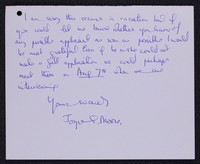 I am sorry this comes in vacation but if
you could let me know whether you know of
any possible applicant as soon as possible I would
be most grateful. Even if he or she could not
make a full application we could perhaps
meet them on Aug 7th when we
interviewing.
Yours sincerely